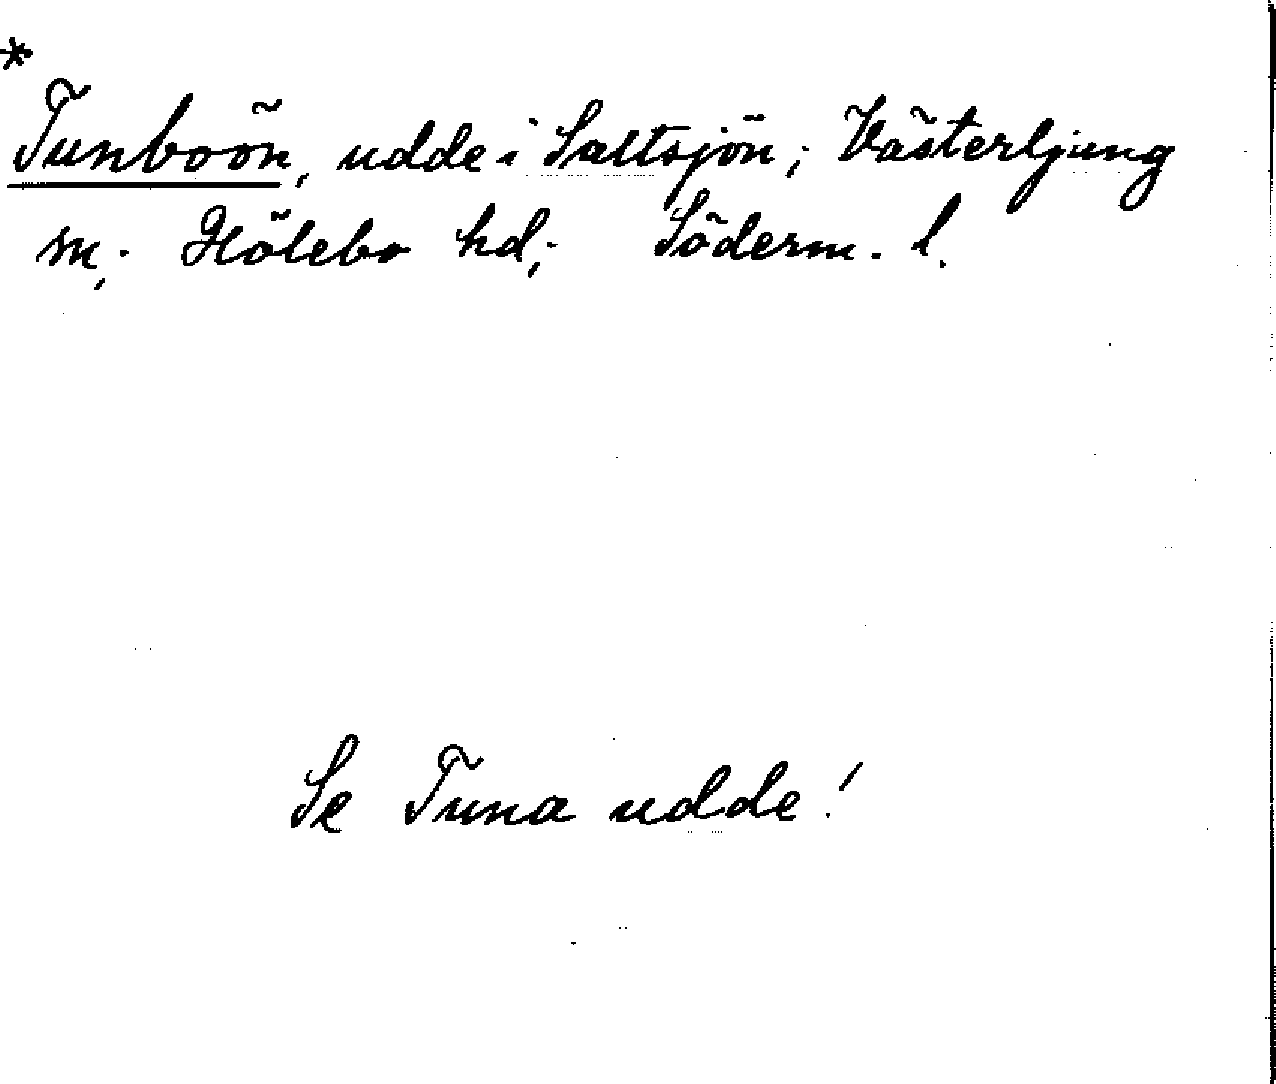 *
Tunboön, udde i Saltsjön; Västerljung
sn; Hölebo hd; Söderm. l.
Se Tuna udde!